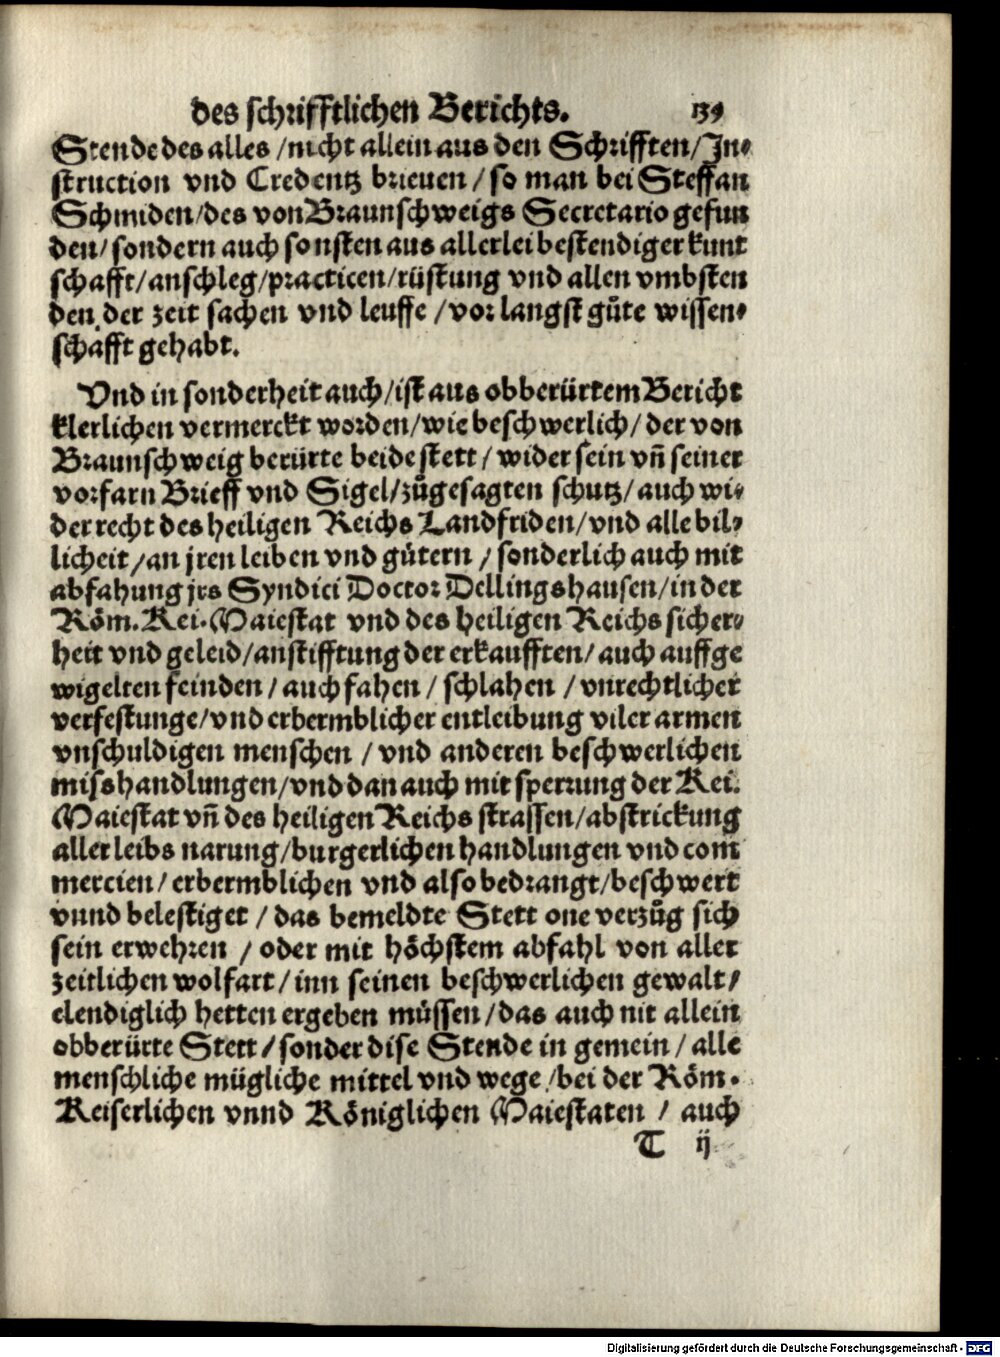 des schrifftlichen Berichts. 139
Stende des alles /nicht allein aus den Schrifften/In⸗
struction vnd Credentz brieuen / so man bei Steffan
Schmiden/des von Braunschweigs Secretario gefun
den/ sondern auch sonsten aus allerlei bestendiger kunt
schafft/anschleg/practicen/rüstung vnd allen vmbsten
den der zeit sachen vnd leuffe /vor langst gůte wissen⸗
schafft gehabt.
Vnd in sonderheit auch/ist aus obberürtem Bericht
klerlichen vermerckt worden/wie beschwerlich/ der von
Braunschweig berürte beide stett / wider sein vñ seiner
vorfarn Brieff vnd Sigel/zůgesagten schutz/ auch wi⸗
der recht des heiligen Reichs Landfriden/vnd alle bil⸗
licheit /an jren leiben vnd gütern / sonderlich auch mit
abfahung jrs Syndici Doctor Dellingshausen/in der
Röm. Kei. Maiestat vnd des heiligen Reichs sicher⸗
heit vnd geleid/anstifftung der erkaufften/ auch auffge
wigelten feinden / auch fahen / schlahen / vnrechtlicher
verfestunge/vnd erbermblicher entleibung viler armen
vnschuldigen menschen / vnd anderen beschwerlichen
misshandlungen/vnd dan auch mit sperrung der Kei.
Maiestat vñ des heiligen Reichs strassen/abstrickung
aller leibs narung/burgerlichen handlungen vnd com
mercien / erbermblichen vnd also bedrangt/beschwert
vnnd belestiget / das bemeldte Stett one verzůg sich
sein erwehren / oder mit höchstem abfahl von aller
zeitlichen wolfart / inn seinen beschwerlichen gewalt/
elendiglich hetten ergeben müssen /das auch nit allein
obberürte Stett / sonder dise Stende in gemein / alle
menschliche mügliche mittel vnd wege /bei der Röm.
Keiserlichen vnnd Königlichen Maiestaten / auch
T ij
Digitalisierung gefördert durch die Deutsche Forschungsgemeinschaft - DFG